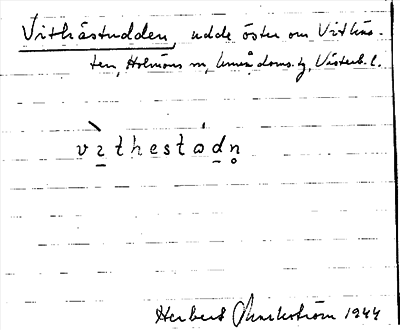 Vithästudden, udde öster om Vithäs-
ten, Holmöns sn, Umeå doms. tg, Västerb. l.
vɪ̱̀thestáḏn̥
Herbert Markström 1944